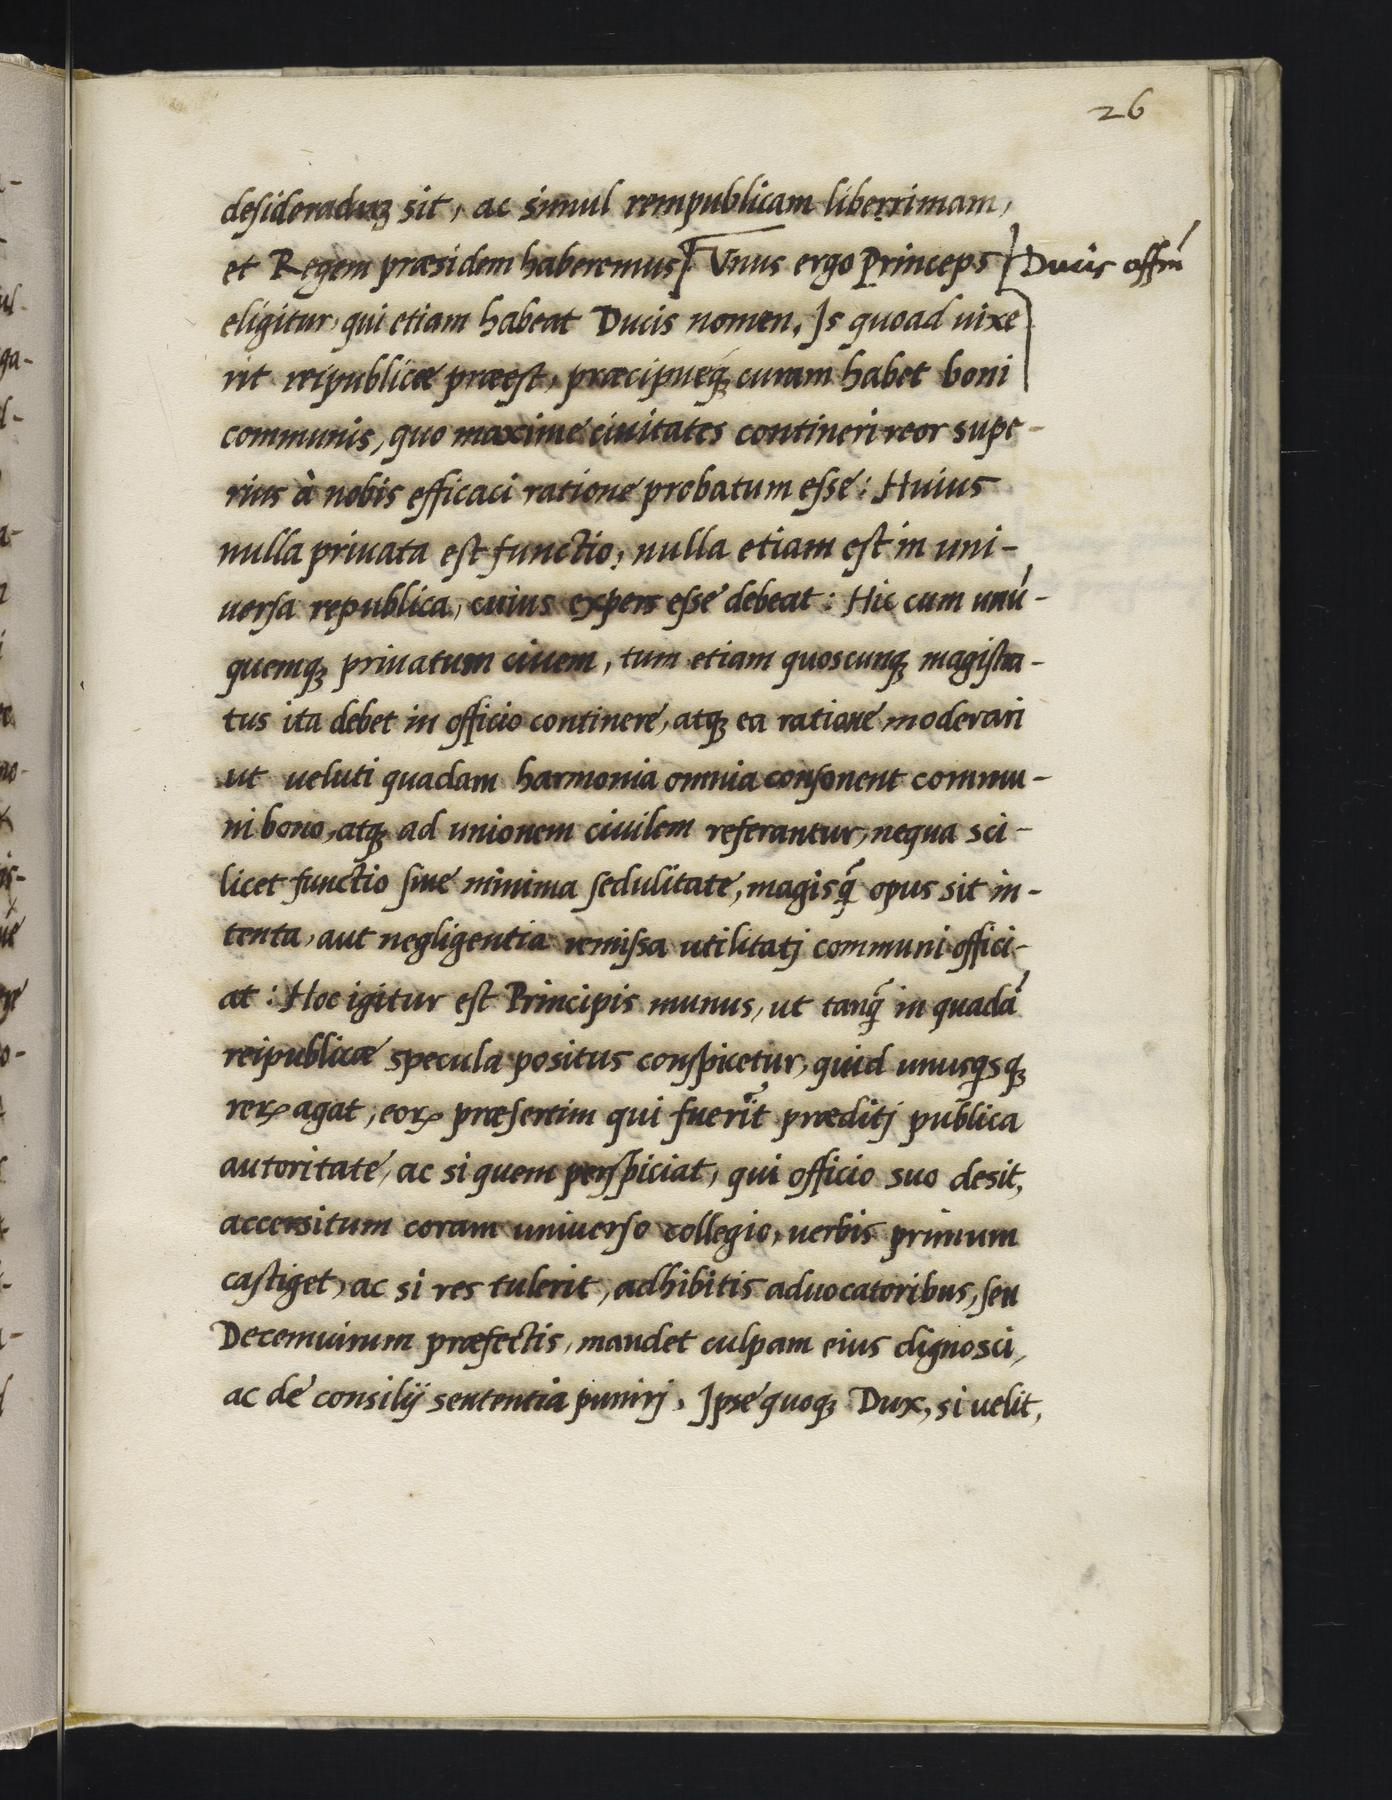 26
desideraduꝫ sit, ac simul rempublicam liberrimam,
et Regem præsidem haberemus[ Vnus ergo Princeps
Ducis offm̃
eligitur, qui etiam habeat Ducis nomen. Is quoad uixe
rit reipublicæ præest, præcipueqꝫ curam habet boni
communis, quo maxime ciuitates contineri reor supe-
rius à nobis efficaci ratione probatum esse: Huius
nulla priuata est functio, nulla etiam est in uni-
uersa republica, cuius expers esse debeat: Hic cum unũ-
quemqꝫ priuatum ciuem, tum etiam quoscunqꝫ magistra-
tus ita debet in officio continere, atqꝫ ea ratione moderari
ut ueluti quadam harmonia omnia consonent commu-
ni bono, atqꝫ ad unionem ciuilem referantur, nequa sci-
licet functio siue nimima sedulitate, magisq̃ opus sit in-
tenta, aut negligentia remissa utilitatj communi offici-
at: Hoc igitur est Principis munus, ut tanq̃ in quadã
reipublicæ specula positus conspicetur, quid unusqsqꝫ
rerꝝ agat, eorꝝ præsertim qui fuerĩt præditj publica
autoritate, ac si quem perspiciat, qui officio suo desit,
accersitum coram uniuerso collegio, uerbis primum
castiget, ac si res tulerit, adhibitis aduocatoribus, seu
Decemuirum præfectis, mandet culpam eius dignosci,
ac de consilij sententia punirj. Ipse quoqꝫ Dux, si uelit,